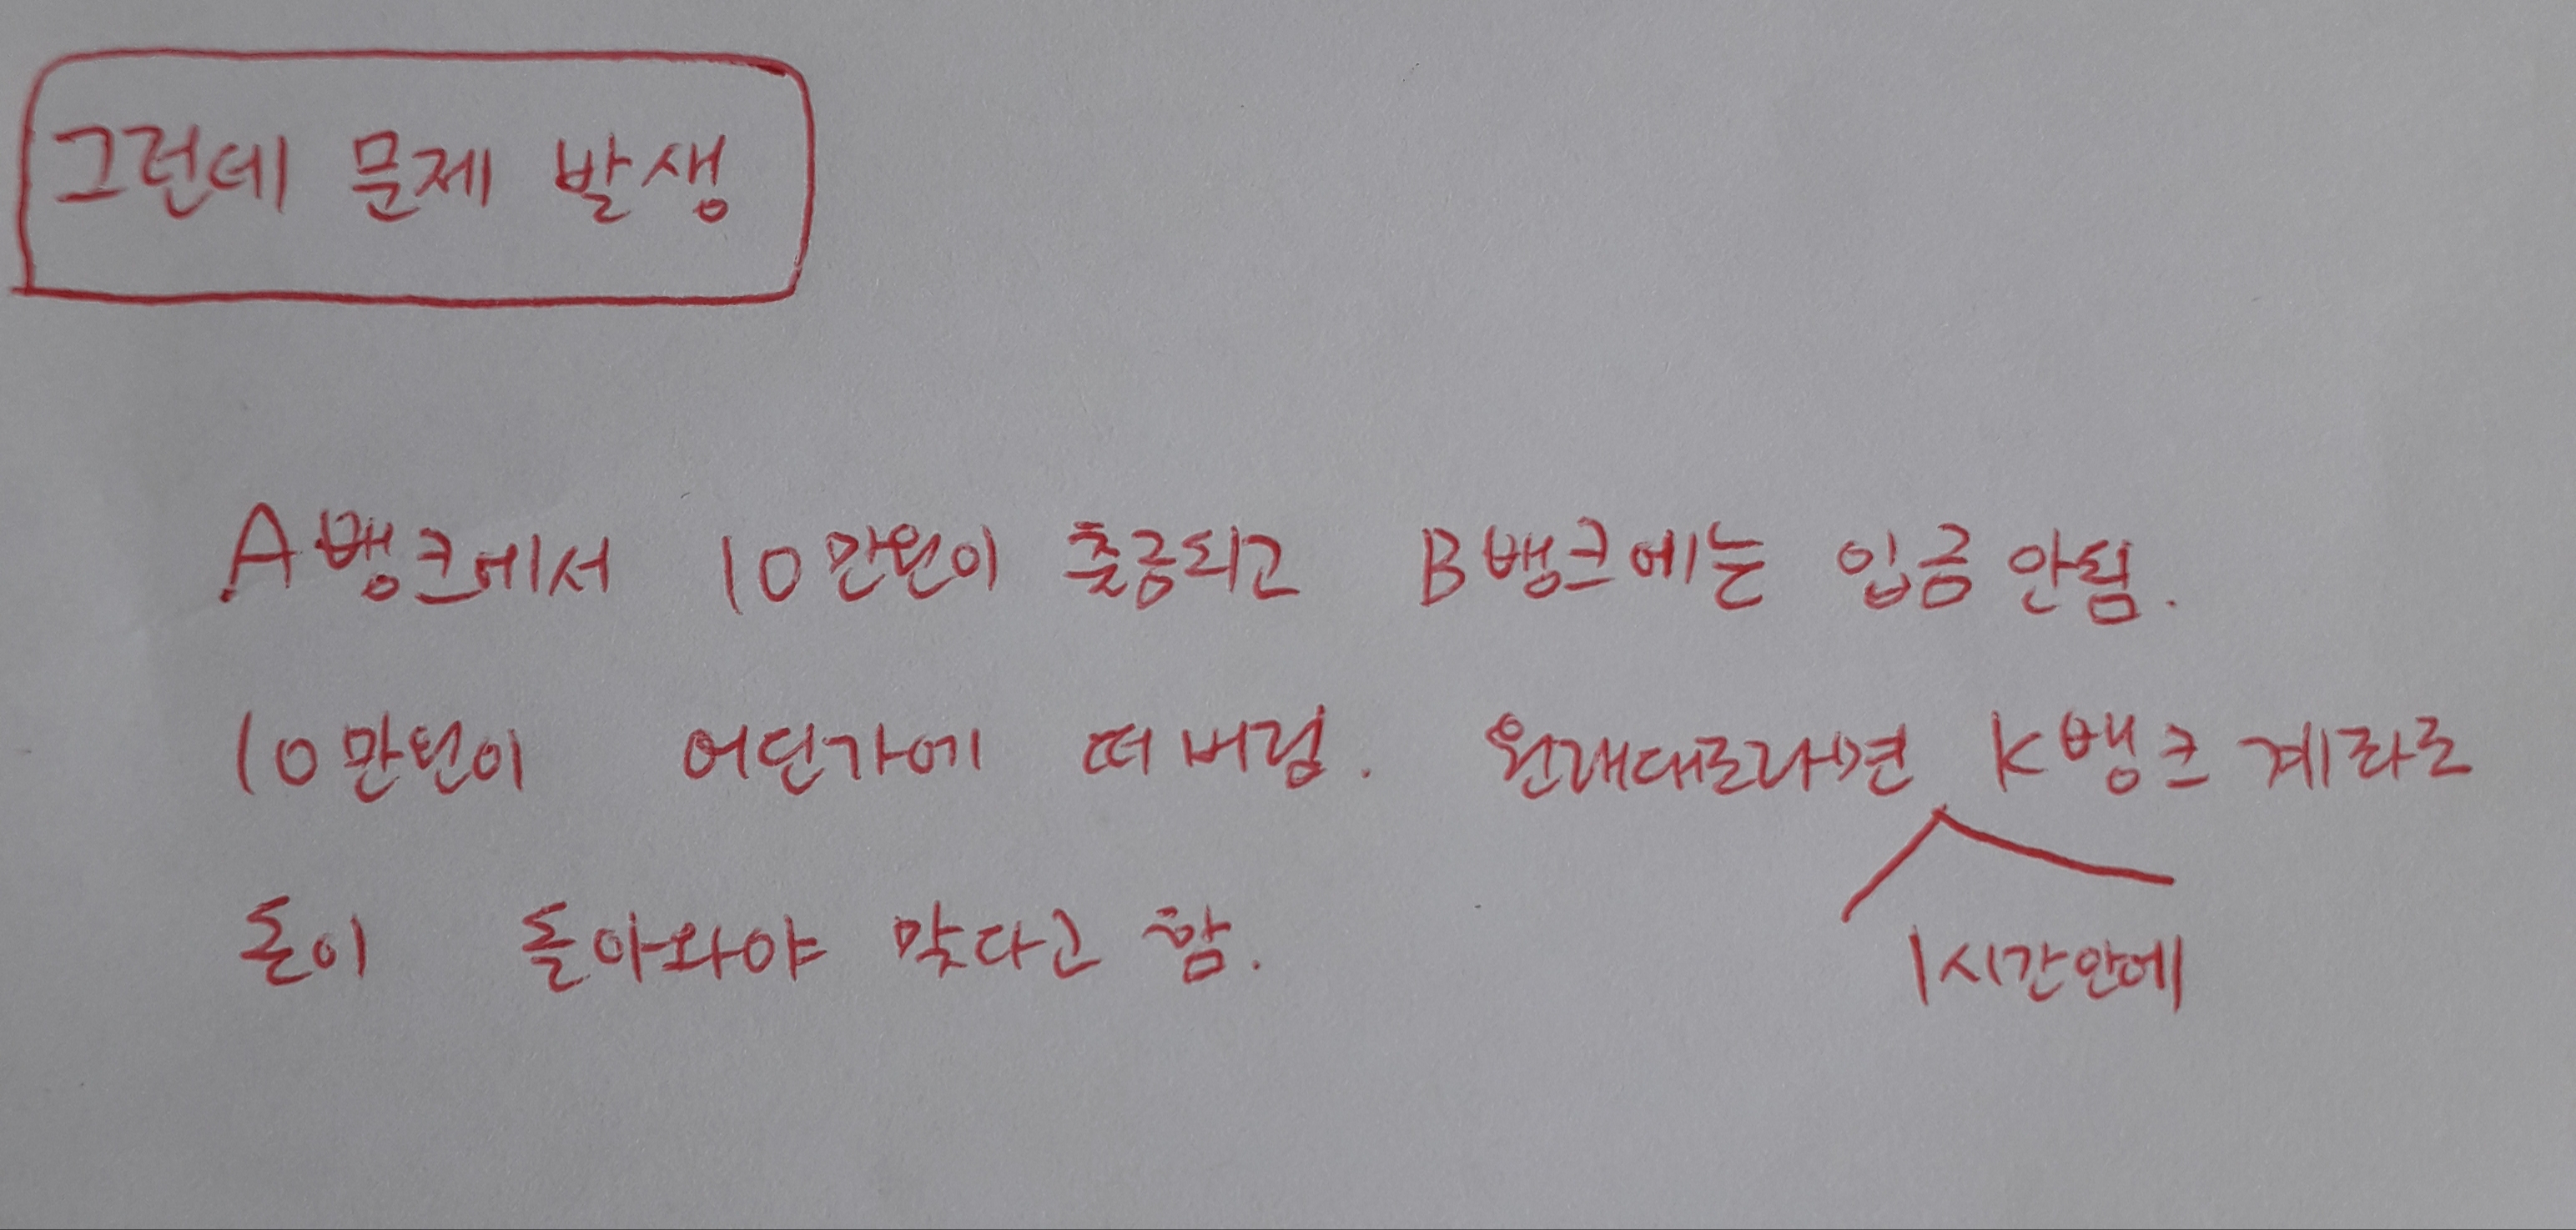 그런데 문제 발생
A뱅크에서 10만원이 출금되고 B뱅크에는 입금 안됨.
10만원이 어딘가에 떠버림. 원래대로라면 K뱅크 계좌로
1시간안에
돈이 돌아와야 맞다고 함.